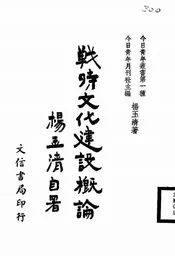 今日青年叢書第一種
今日青年月刊社主編
楊玉清著
戰時文化建設概論
楊玉清自署
文信書局印行